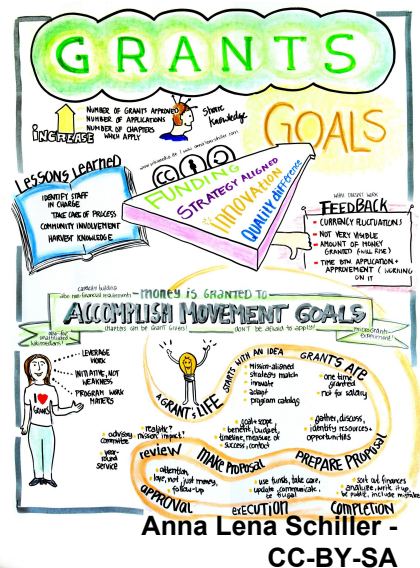 GRANTS
NUMBER OF GRANTS APPROVED
NUMBER OF APPLICATIONS
NUMBER OF CHAPTERS
WHICH APPLY
INCREASE
Share
Knowledge
GOALS
LESSONS LEARNED
IDENTIFY STAFF
IN CHARGE
TAKE CARE OF PROCESS
COMMUNITY INVOLVEMENT
HARVEST KNOWLEDGE
FUNDING
STRATEGY ALIGNED
innovation
QUALITY difference
WHAT DOESN'T WORK
FEEDBACK
- CURRENCY FLUCTUATIONS
- NOT VERY VISIBLE
- AMOUNT OF MONEY
GRANTED (WILL RISE)
- TIME BTW. APPLICATION +
APPROVEMENT (WORKING
ON IT)
capacity building
also non-financial requirements
money is GRANTED TO
ACCOMPLISH MOVEMENT GOALS
chapters can be Grant Givers!
DON'T be afraid to apply!
LEVERAGE
WORK
INITIATIVE, NOT
WEAKNESS
PROGRAM WORK
MATTERS
I
GRANTS
A GRANT'S LIFE
STARTS WITH AN IDEA
mission-aligned
strategy match
innovate
adapt
program catalog
GRANTS ARE
one time
granted
not for salary
goal + scope
benefit, budget,
timeline, measure of
success, contact
gather, discuss,
identify resources +
opportunities
PREPARE PROPOSAL
MAKE PROPOSAL
review
realistic?
mission impact?
advisory
committee
year-
round
service
attention,
love, not just money,
follow-up
APPROVAL
use funds, take care,
update, communicate,
be frugal
EXECUTION
sort out finances
analyze, write it up,
be public, include mistakes
COMPLETION
Anna Lena Schiller -
CC-BY-SA